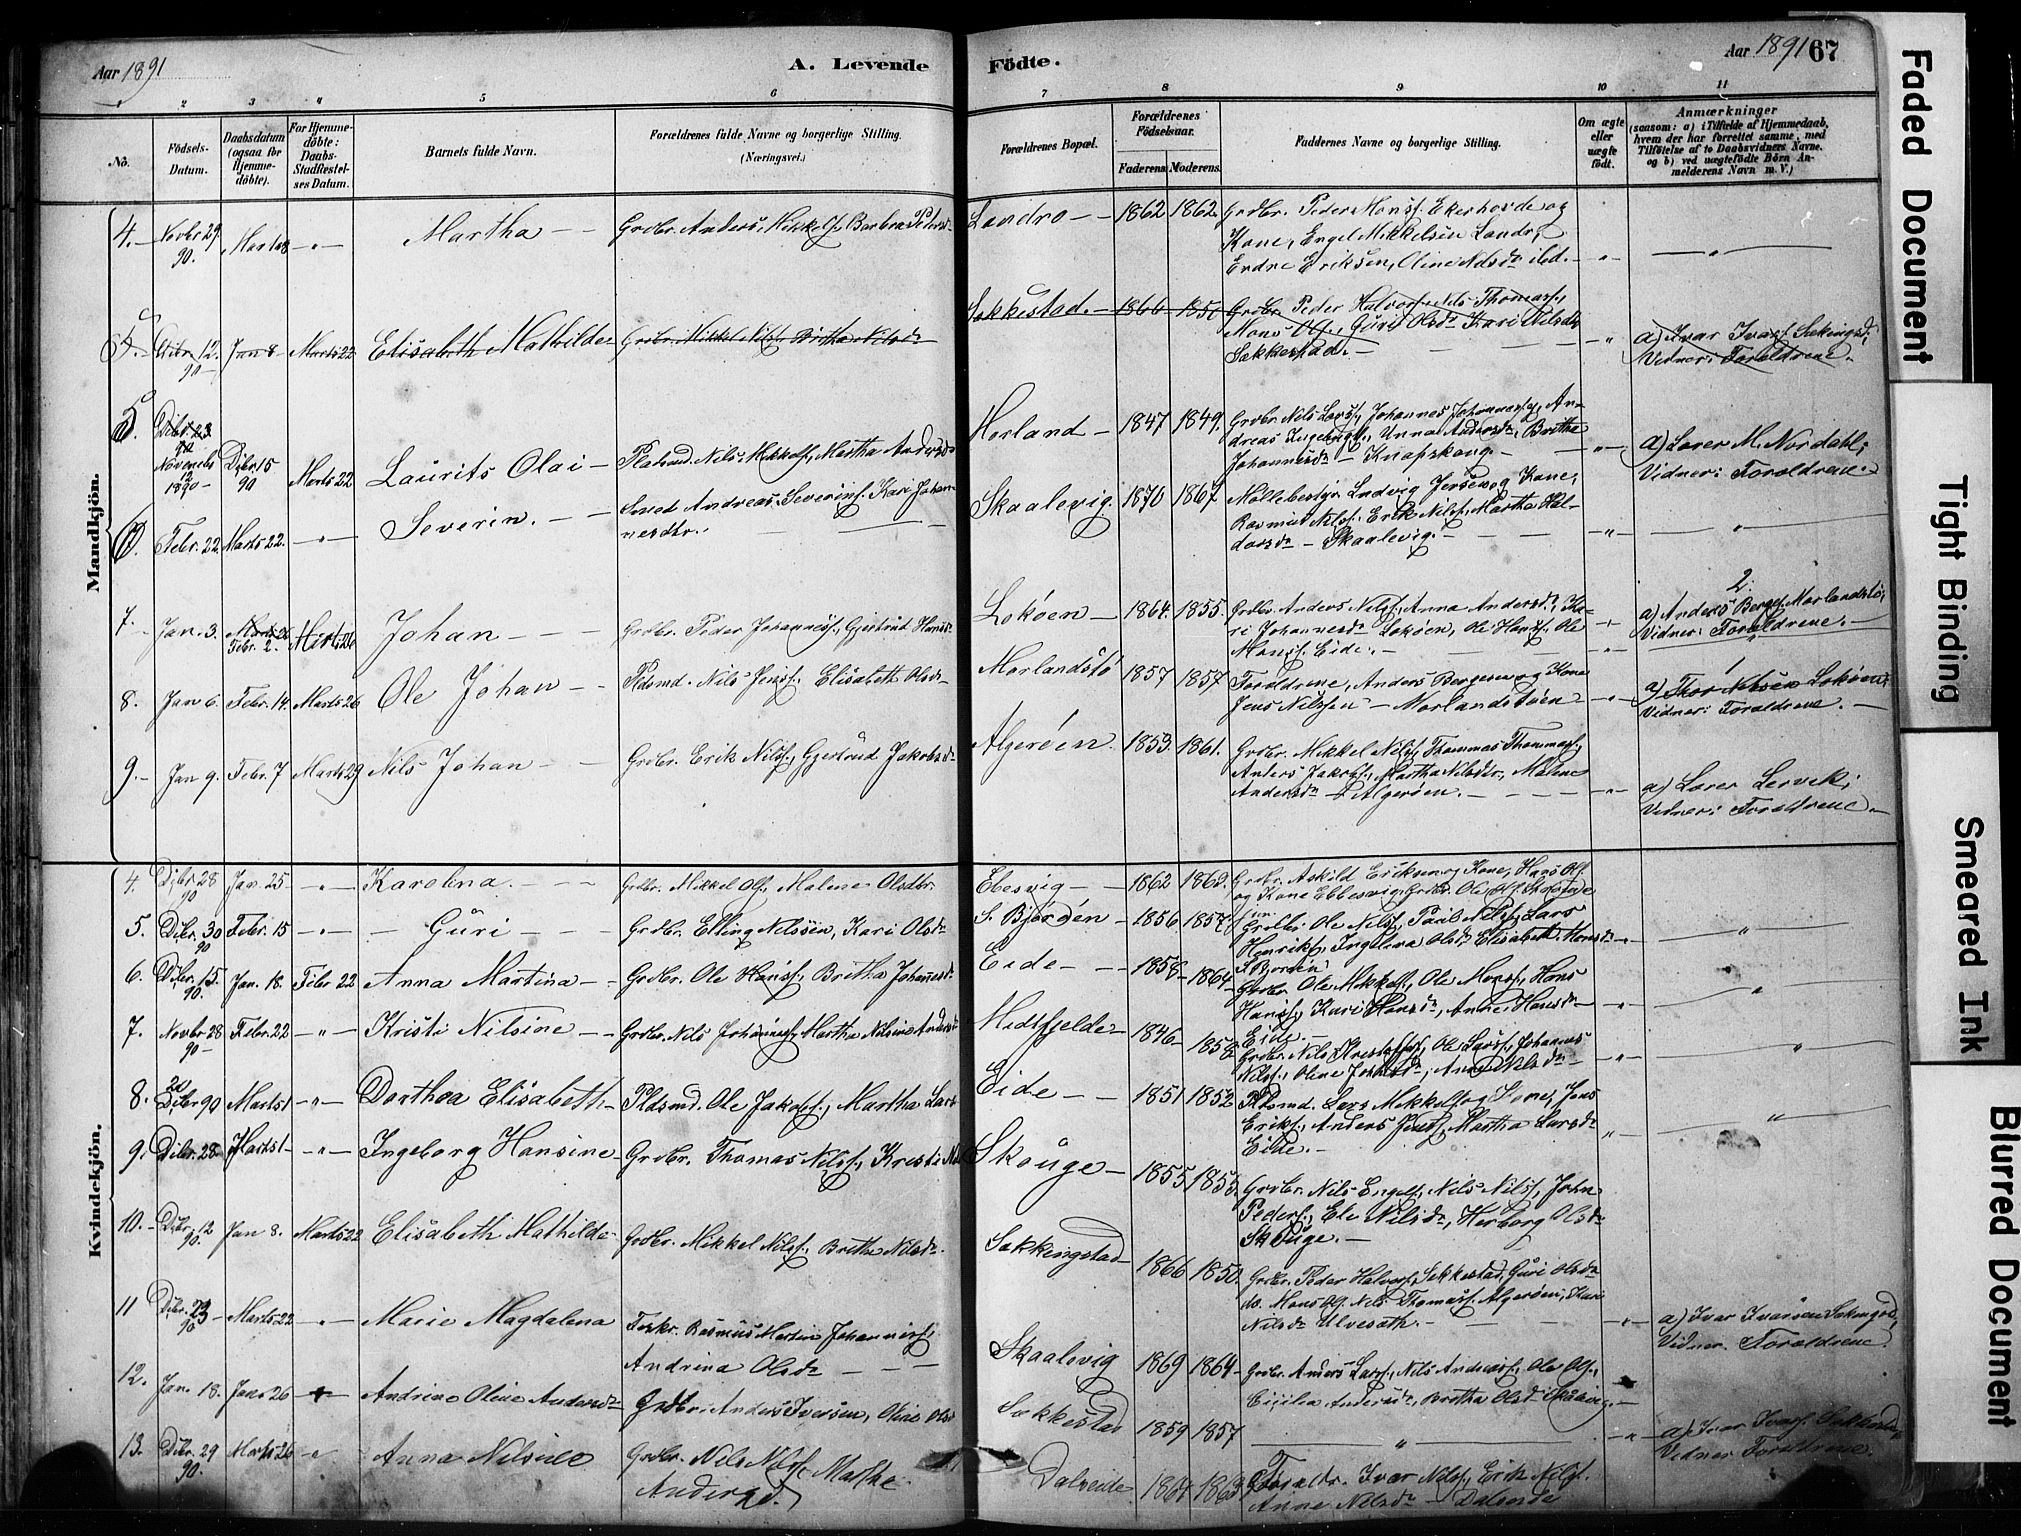 Aar 1891
A. Levende
Födte.
Aar 1891 67
1 2 3 4 5 6 7 8 9 10 11
No.
Födsels-
Datum.
Daabsdatum
(ogsaa for
Hjemme-
döbte).
For Hjemme-
döbte:
Daabs-
Stadfestel-
ses Datum.
Barnets fulde Navn.
Forældrenes fulde Navne og borgerlige Stilling.
(Næringsvei.)
Forældrenes Bopæl.
Forældrenes
Födselsaar.
Faderens Moderens.
Faddernes Navne og borgerlige Stilling.
Om ægte
eller
uægte
födt.
Anmærkninger
(saasom: a) i Tilfælde af Hjemmedaab,
hvem der har forrettet samme, med
Tilföielse af to Daabsvidners Navne.
og b) ved uægtefödte Börn An-
melderens Navn m. V.)
Mandkjön.
4. Novbr 29 90. Marts 8 Martha Grdbr. Anders Mikkels. Barbra Petersd Landro 1862 1862. Grdbr. Peder Monss. Ekerhovde og
Kone, Engel Mikkelsen Landr,
Endre Eriksen, Oline Nilsdr ibd.
5. Dcbr. 12. 90 Jan 8. Marts 22 Elisabeth Mathilde Grdbr. Mikkel Nilss. Britha Nilsdr Sekkestad. 1866 1850 Grdbr. Peder Halvors. Nils Thomass.,
Mons Ols., Guri Olsdr Kari Nilsdr
Sekkestad. a) Ivar Ivars. Sekingst.
Vidner: Foraldrene.
5. Dcbr. 23 90 Novembr 12 1890 Dcbr 15 90 Marts 22 Laurits Olai Pladsmd. Nils Mikkels., Martha Andersd Horland 1847 1849. Grdbr. Nils Larss., Johannes Johanness., An-
dreas Ingebrigts., Unna Andersdr, Britha
Johannesdr Knapskog. a) Lærer M. Nordahl;
Vidner: Foraldrene.
6. Febr. 22. Marts 22. Severin. Smed Andreas Severins. Kari Johan-
nesdtr. Skaalevig. 1870 1867 Møllebestyr. Ludvig Jensen og Kone,
Rasmus Nilss., Erik Nilss., Martha Hal-
dorsdr Skaalevig.
7. Jan. 3. Febr. 2. Marts 26 Johan Grdbr. Peder Johanness., Gjertrud Hansd Lokøen 1864. 1855. Grdbr. Anders Nilss., Anna Andersd., Ka-
ri Johannesdr Lokøen, Ole Hanss. Ole
Monss. Eide. 2 a) Anders Berges. Morlandstø;
Vidner: Foraldrene.
8. Jan 6. Febr. 14. Marts 26 Ole Johan Pldsmd. Nils Jenss., Elisabeth Olsdr Morlandstø 1857 1857 Foraldrene, Anders Bergesen og Kone
Jens Nilssen Morlandstøen 1 a) Thor Nilsen Lokøen;
Vidner: Foraldrene.
9. Jan 9. Febr. 7 Marts 29 Nils Johan Grdbr. Erik Nilss., Gjertrud Jakobsd Algerøen. 1853. 1861. Grdbr. Mikkel Nilss. Thommas Thommass.,
Anders Jakobs., Martha Nilsdtr., Malene
Andersdr Algerøen. a) Lærer Lervek;
Vidner: Foraldrene.
Kvindekjön.
4. Dcbr 28 90 Jan. 25 Karolina. Grdbr. Mikkel Ols., Malene Olsdtr. Ebesvig 1862 1862. Grdbr. Askild Eriksen og Kone, Hans Ols.
og Kone Ebbesvig, Grdbr. Ole Ols.
5. Dcbr. 30 90 Febr. 15 Guri Grdbr. Elling Nilssen, Kari Olsdr S. Bjorøen 1856 1857. Grdbr. Ole Nilss. Paul Nilss., Lars
Henriks., Ingelena Olsdr Elisabeth Monsdr
S. Bjorøen
6. Dcbr. 15. 90. Jan. 18. Febr 22 Anna Martina Grdbr. Ole Hanss., Britha Johannesd Eide 1858 1864 Grdbr. Ole Mikkels., Ole Monss., Hans
Hanss., Kari Hansdr, Anne Hansdr
Eide.
7. Novbr 28 90 Febr. 22 Kristi Nilsine Grdbr. Nils Johanness. Martha Nilsine Andersd Midtfjelde 1846 1856 Grdbr. Nils Kristoffers., Ole Larss., Johannes
Nilss., Oline Josefsdr, Anne Nilsdr
8. 20 Dcbr 90 Marts 1 Dorthea Elisabeth Pldsmd. Ole Jakobs., Martha Larsd Eide 1851 1852 Pldsmd. Lars Mikkels. og Kone, Jens
Eriks., Anders Jenss., Martha Larsdr
Eide.
9. Dcbr. 28 Marts 1 Ingeborg Hansine Grdbr. Thomas Nilss., Kristi Nil Skouge 1855 1855. Grdbr. Nils Engels., Nils Nilss., John
Peders., Eli Nilsdr, Herborg Olsdr
Skouge.
10. Dcbr. 12 90. Jan 8. Marts 22 Elisabeth Mathilde Grdbr. Mikkel Nilss., Britha Nilsdr. Sekkingstad 1866 1850. Grdbr. Peder Halvors., Sekkestad, Guri Olsdr
do. Mons Ols. Nils Thomass. Algerøen, Kari
Nilsdr Ulveseth. a) Ivar Ivarsen Sekingsd,
Vidner. Foraldrene.
11 Dcbr. 23 90 Marts 22 Marie Magdalena Fisker. Rasmus Martin Johanness.,
Andrina Olsdr Skaalevig 1869 1864 Grdbr. Anders Larss., Nils Anderss., Ole Ols.,
Cicilia Andersdr, Britha Olsdr Skaalvig.
12. Jan. 18. Jan. 26 Andrine Oline Andersdr Grdbr. Anders Iversen, Oline Olsd Sekkestad 1859 1857 a) Ivar Ivars. Sekkestad,
Vidner Foraldrene.
13. Dcbr. 29 90. Marts 26 Anna Nilsine Grdbr. Nils Nilss. Marthe
Andersd. Dalseide 1864 1863 Foraldr. Ivar Nilss., Erik Nilss.
Anne Nilsdr Dalseide
Faded Document
Tight Binding
Smeared Ink
Blurred Document